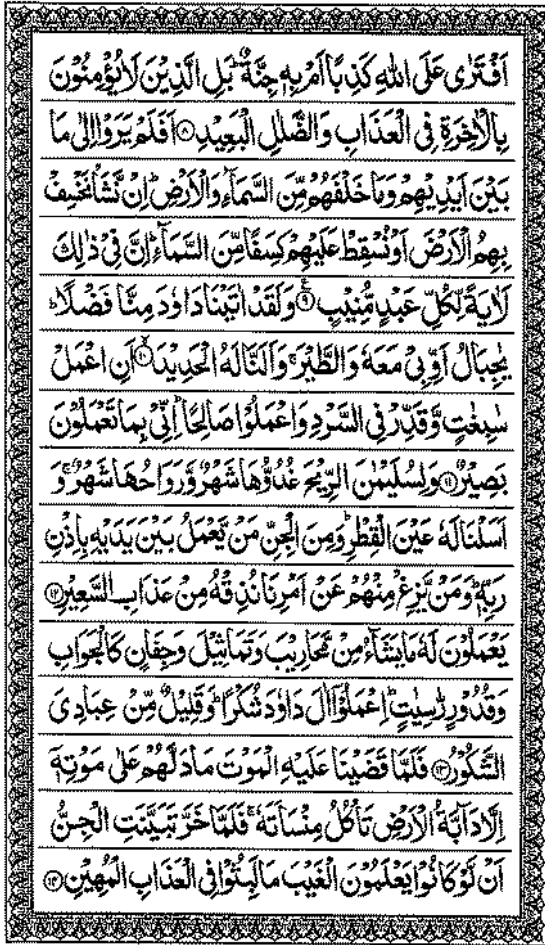 اَفْتَرٰى عَلَى اللّٰهِ كَذِبًا اَمْ بِهٖ جِنَّةٌ ؕ بَلِ الَّذِيْنَ لَا يُؤْمِنُوْنَ
بِالْاٰخِرَةِ فِى الْعَذَابِ وَالضَّلٰلِ الْبَعِيْدِ ۝۸ اَفَلَمْ يَرَوْا اِلٰى مَا
بَيْنَ اَيْدِيْهِمْ وَمَا خَلْفَهُمْ مِّنَ السَّمَآءِ وَالْاَرْضِ ؕ اِنْ نَّشَاْ نَخْسِفْ
بِهِمُ الْاَرْضَ اَوْ نُسْقِطْ عَلَيْهِمْ كِسَفًا مِّنَ السَّمَآءِ ؕ اِنَّ فِىْ ذٰلِكَ
لَاٰيَةً لِّكُلِّ عَبْدٍ مُّنِيْبٍ ۝۹ وَلَقَدْ اٰتَيْنَا دَاوٗدَ مِنَّا فَضْلًا ؕ
يٰجِبَالُ اَوِّبِىْ مَعَهٗ وَالطَّيْرَ ۚ وَاَلَنَّا لَهُ الْحَدِيْدَ ۝۱۰ اَنِ اعْمَلْ
سٰبِغٰتٍ وَّقَدِّرْ فِى السَّرْدِ وَاعْمَلُوْا صَالِحًا ؕ اِنِّىْ بِمَا تَعْمَلُوْنَ
بَصِيْرٌ ۝۱۱ وَلِسُلَيْمٰنَ الرِّيْحَ غُدُوُّهَا شَهْرٌ وَّرَوَاحُهَا شَهْرٌ ۚ وَ
اَسَلْنَا لَهٗ عَيْنَ الْقِطْرِ ؕ وَمِنَ الْجِنِّ مَنْ يَّعْمَلُ بَيْنَ يَدَيْهِ بِاِذْنِ
رَبِّهٖ ؕ وَمَنْ يَّزِغْ مِنْهُمْ عَنْ اَمْرِنَا نُذِقْهُ مِنْ عَذَابِ السَّعِيْرِ ۝۱۲
يَعْمَلُوْنَ لَهٗ مَا يَشَآءُ مِنْ مَّحَارِيْبَ وَتَمَاثِيْلَ وَجِفَانٍ كَالْجَوَابِ
وَقُدُوْرٍ رّٰسِيٰتٍ ؕ اِعْمَلُوْٓا اٰلَ دَاوٗدَ شُكْرًا ؕ وَقَلِيْلٌ مِّنْ عِبَادِىَ
الشَّكُوْرُ ۝۱۳ فَلَمَّا قَضَيْنَا عَلَيْهِ الْمَوْتَ مَا دَلَّهُمْ عَلٰى مَوْتِهٖٓ
اِلَّا دَآبَّةُ الْاَرْضِ تَاْكُلُ مِنْسَاَتَهٗ ۚ فَلَمَّا خَرَّ تَبَيَّنَتِ الْجِنُّ
اَنْ لَّوْ كَانُوْا يَعْلَمُوْنَ الْغَيْبَ مَا لَبِثُوْا فِى الْعَذَابِ الْمُهِيْنِ ۝۱۴